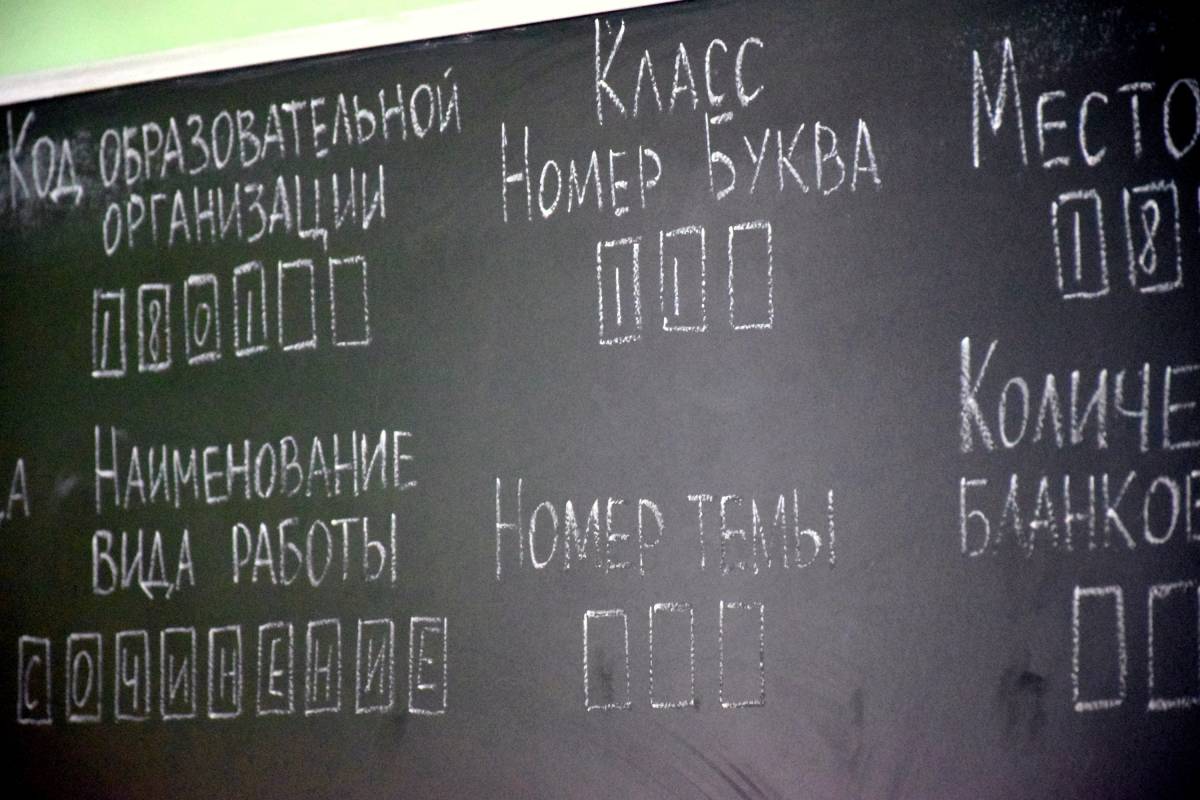 Код образовательной
организации
1801
Класс
Номер Буква
11
Место
18
Наименование
вида работы
сочинение
Номер темы